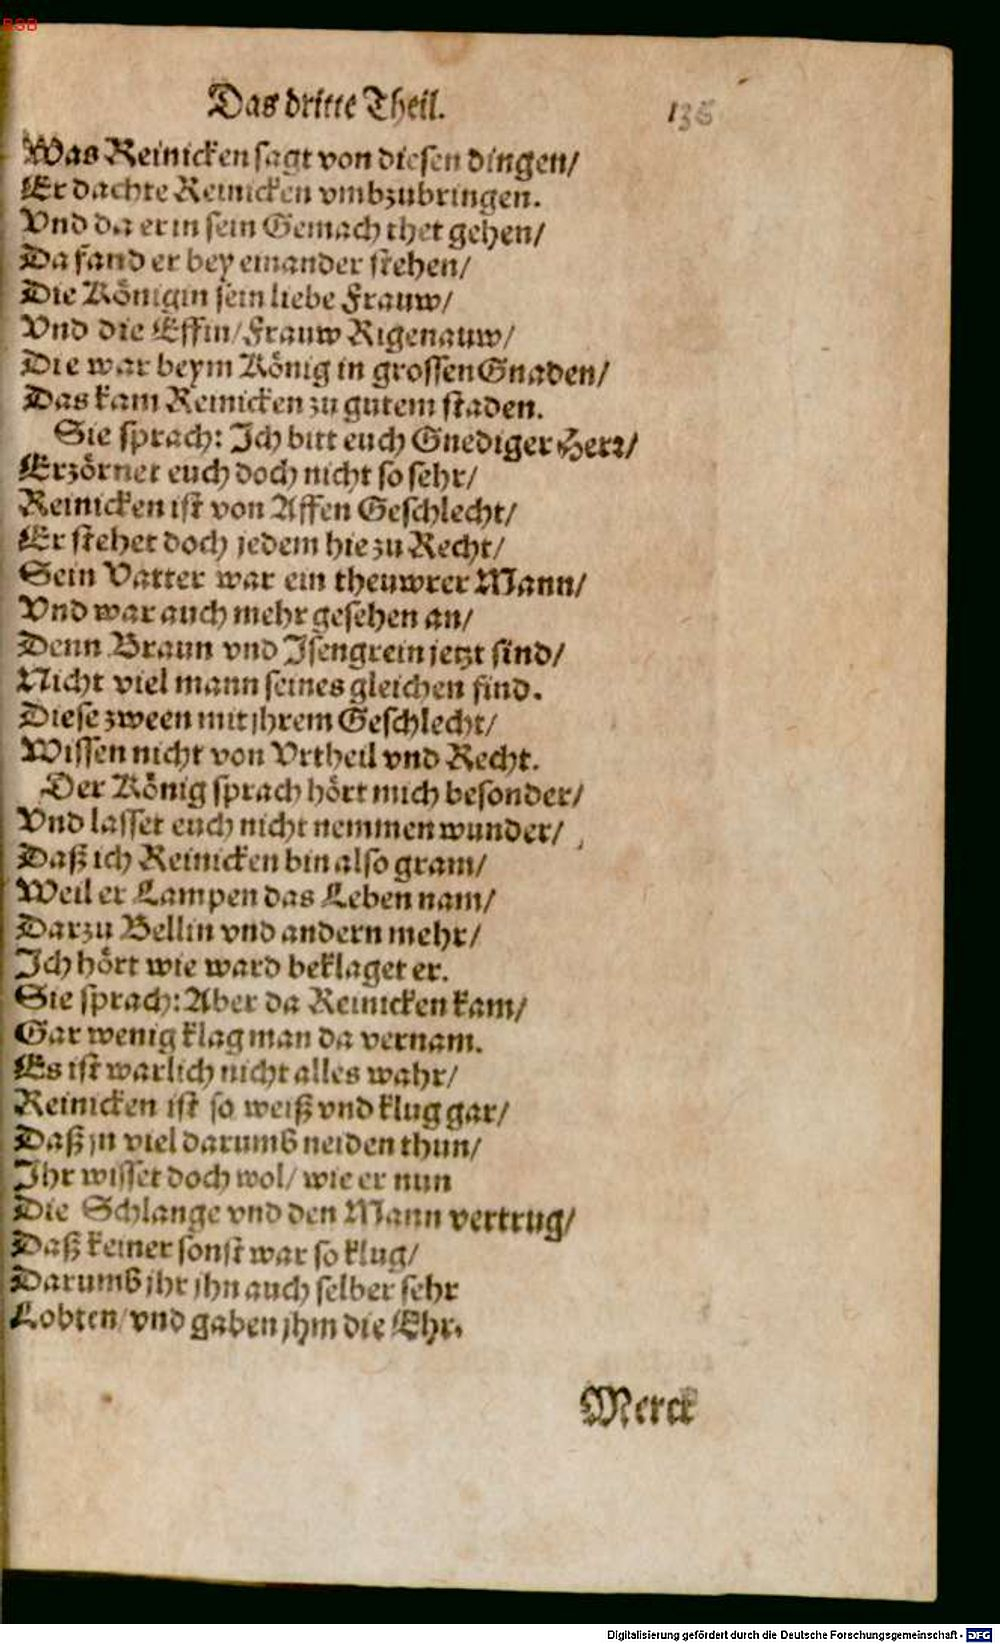 BSB
Das dritte Theil. 136
Was Reinicken sagt von diesen dingen/
Er dachte Reinicken vmbzubringen.
Vnd da er in sein Gemach thet gehen/
Da fand er bey einander stehen/
Die Königin sein liebe Frauw/
Vnd die Effin/ Frauw Rigenauw/
Die war beym König in grossen Gnaden/
Das kam Reinicken zu gutem staden.
Sie sprach: Ich bitt euch Gnediger Herr/
Erzörnet euch doch nicht so sehr/
Reinicken ist von Affen Geschlecht/
Er stehet doch jedem hie zu Recht/
Sein Vatter war ein theuwrer Mann/
Vnd war auch mehr gesehen an/
Denn Braun vnd Isengrein jetzt sind/
Nicht viel mann seines gleichen find.
Diese zween mit jhrem Geschlecht/
Wissen nicht von Vrtheil vnd Recht.
Der König sprach hört mich besonder/
Vnd lasset euch nicht nemmen wunder/
Daß ich Reinicken bin also gram/
Weil er Lampen das Leben nam/
Darzu Bellin vnd andern mehr/
Ich hört wie ward beklaget er.
Sie sprach: Aber da Reinicken kam/
Gar wenig klag man da vernam.
Es ist warlich nicht alles wahr/
Reinicken ist so weiß vnd klug gar/
Daß jn viel darumb neiden thun/
Ihr wisset doch wol/ wie er nun
Die Schlange vnd den Mann vertrug/
Daß keiner sonst war so klug/
Darumb jhr jhn auch selber sehr
Lobten/ vnd gaben jhm die Ehr.
Merck
Digitalisierung gefördert durch die Deutsche Forschungsgemeinschaft - DFG